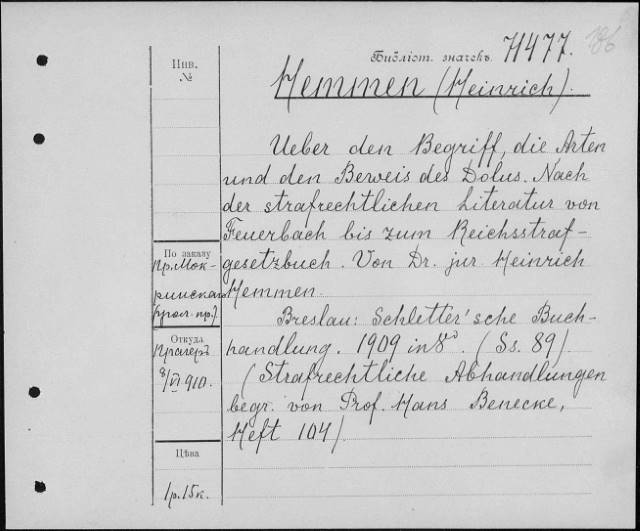 Библіот. значекъ H477. 186
Инв. №
Hemmen (Heinrich).
Ueber den Begriff, die Arten
und den Beweis des Dolus. Nach
der strafrechtlichen Literatur von
Feuerbach bis zum Reichsstraf-
gesetzbuch. Von Dr. jur Heinrich
Hemmen.
Breslau: Schletter'sche Buch-
handlung. 1909 in 8º. (Ss. 89)
(Strafrechtliche Abhandlungen
begr. von Prof. Hans Benecke,
Heft 104)
По заказу
Пр. Мок-
ринскаго
Откуда
Прагеръ
8/VI 910.
Цѣна
1р. 15к.